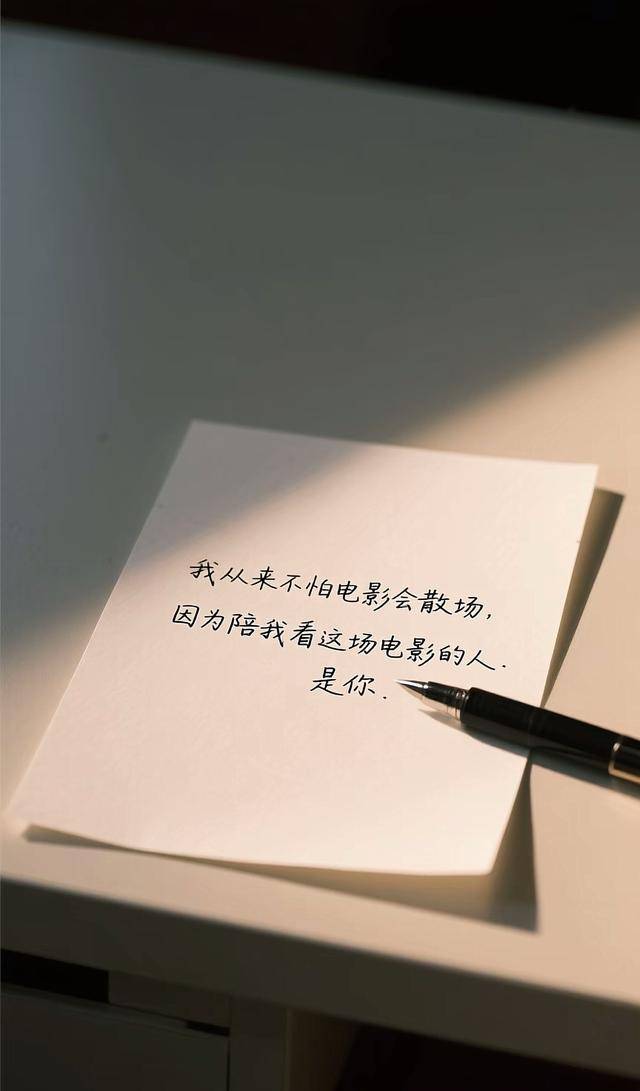 我从来不怕电影会散场，
因为陪我看这场电影的人.
是你.